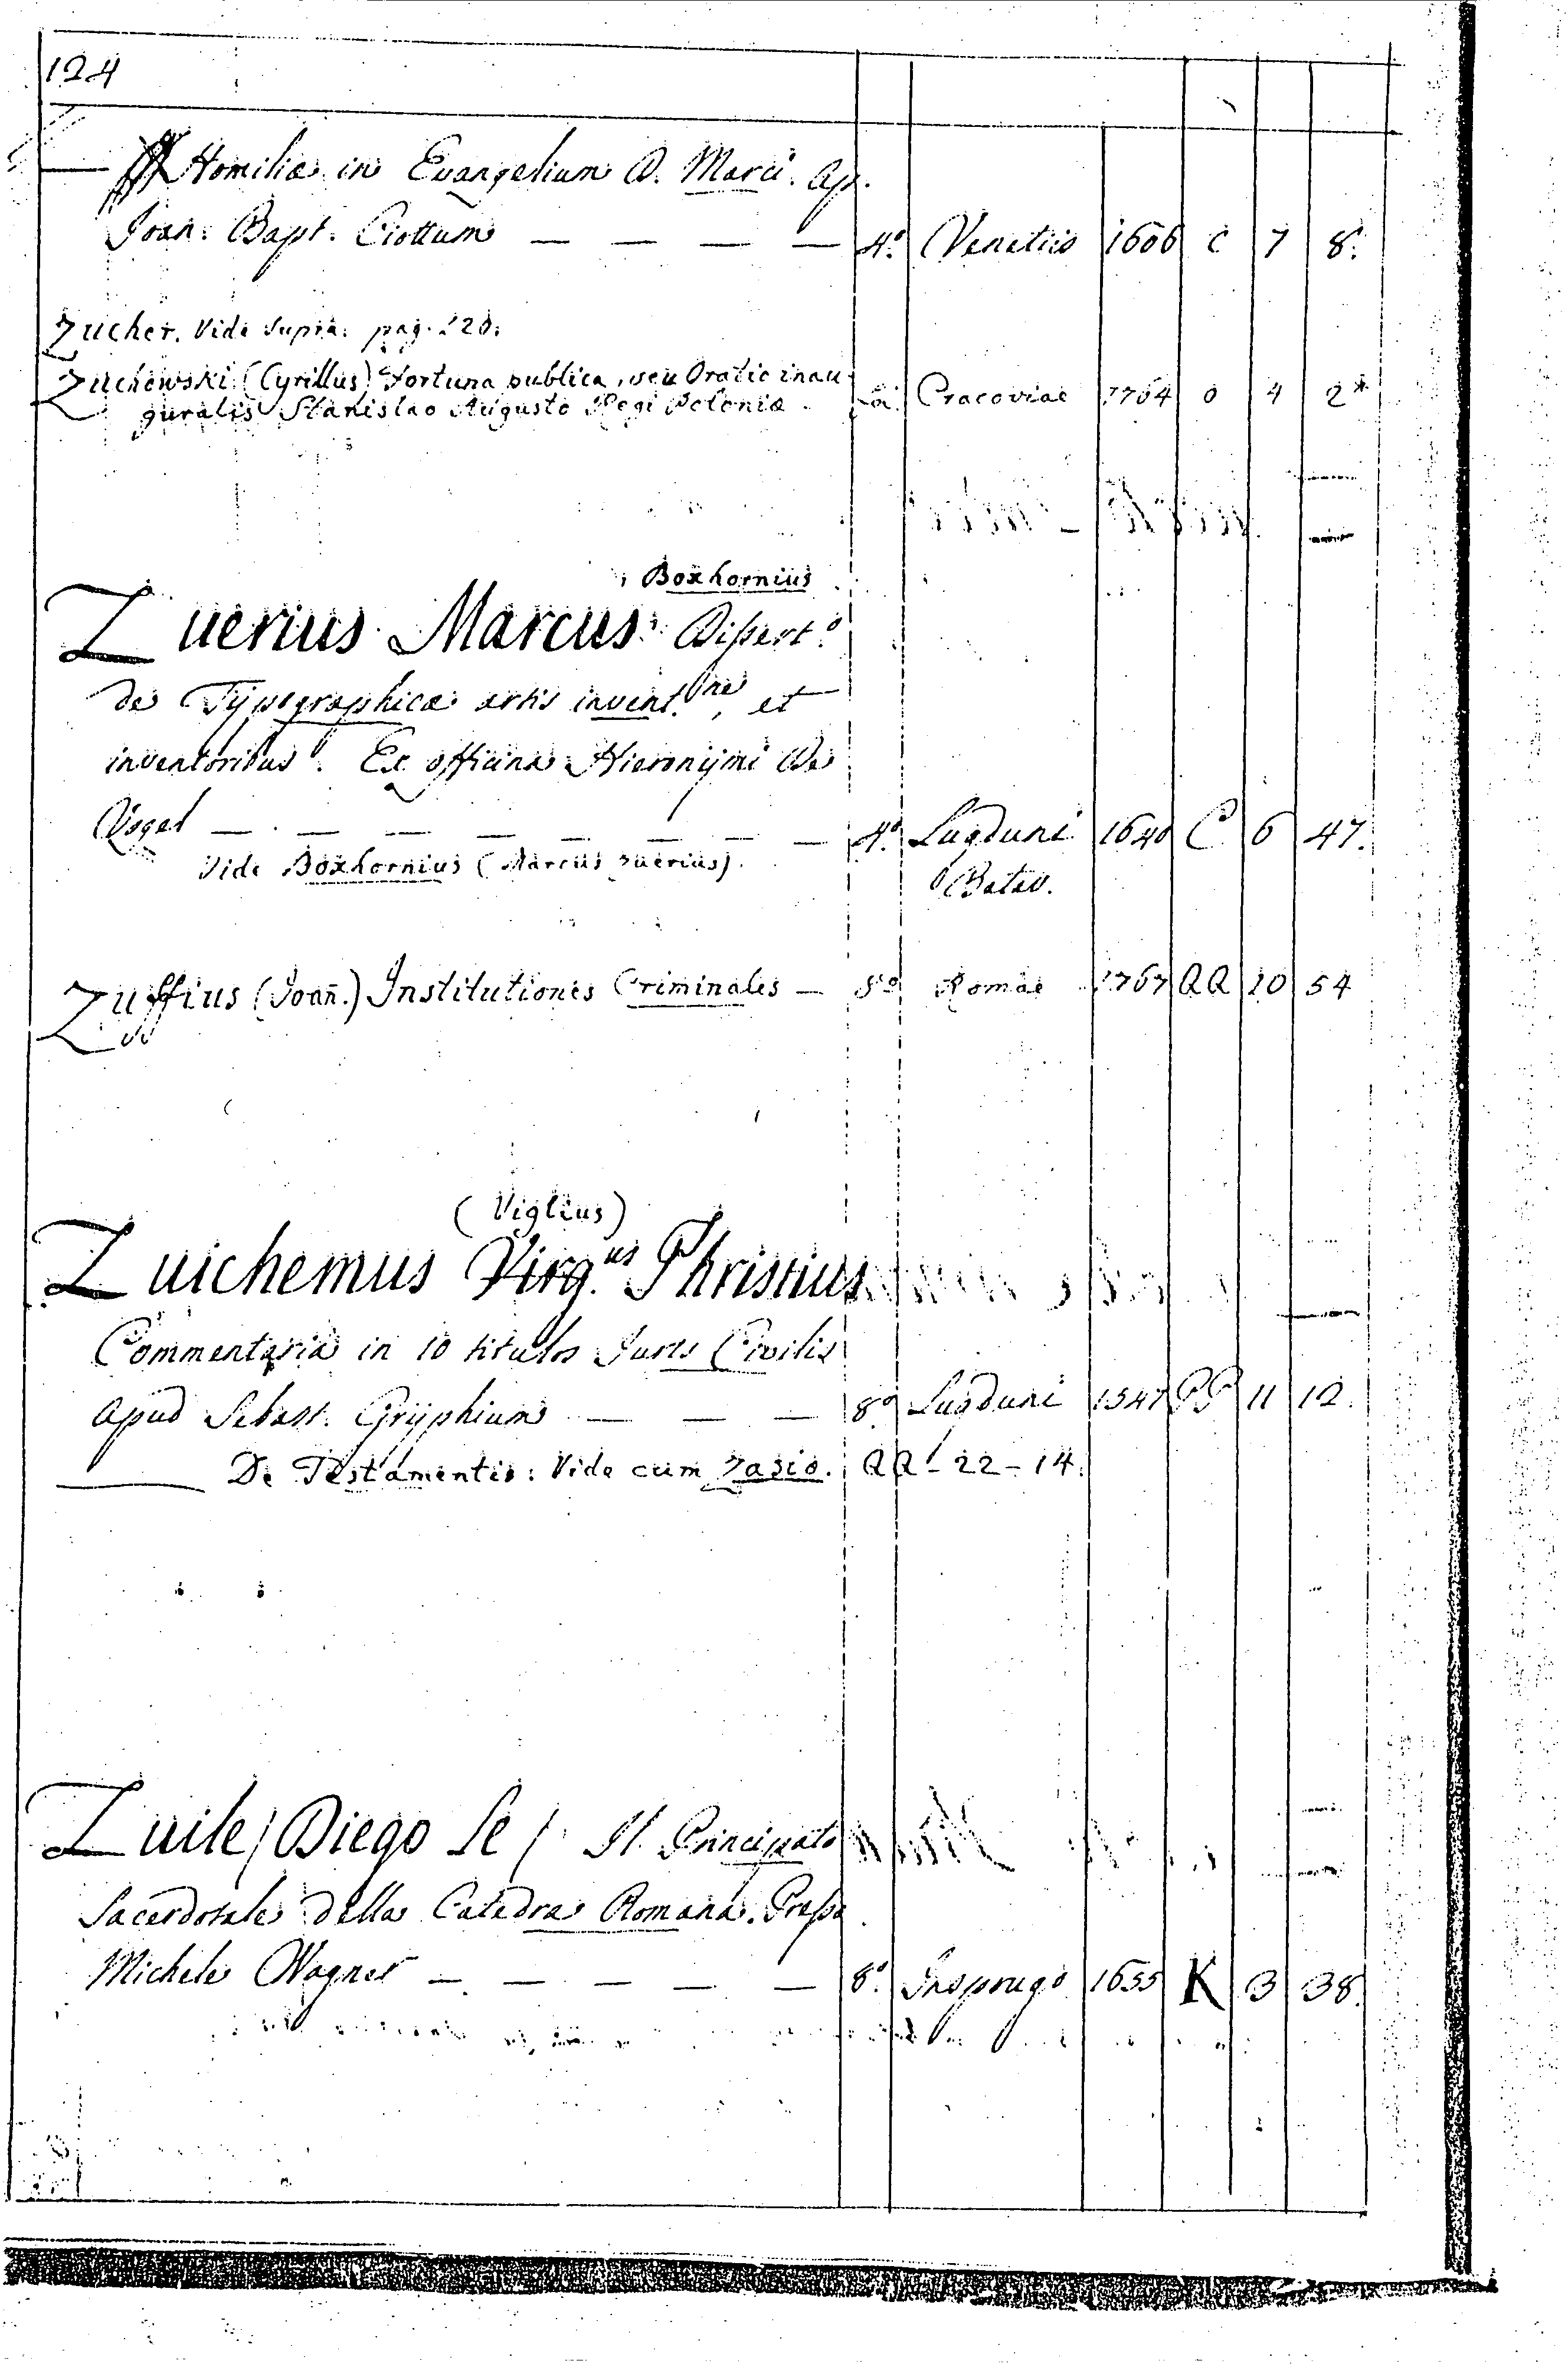 124
— Homiliæ in Evangelium D. Marci. Ap.
Joan: Bapt: Ciottum — — — — 4.º Venetiis 1606 C 7 8.
Zucher. Vide supra: pag. 120.
Zuchowski (Cyrillus) Fortuna publica, seu Oratio inau-
guralis Stanislao Augusto Regi Poloniæ. Cracoviae 1764 O 4 2*
Boxhornius
Zuerius Marcus Dissert.º
de Typographicæ artis invent.ne, et
inventoribus. Ex officina Hieronymi De
Vogel — — — — — — — — 4.º Lugduni 1640 C 6 47.
Vide Boxhornius (Marcus zuerius). Batav.
Zuffius (Joañ.) Institutiones Criminales — 8º Romae 1767 QQ 10 54
(Viglius)
Zuichemus Virg.us Phristius
Commentaria in 10 titulos Juris Civilis
apud Sebast. Gryphium — — — 8º Lugduni 1547 PP 11 12.
— De Testamentis: Vide cum Zasio. QQ - 22 - 14.
Zuile / Diego Le / Il Principato
Sacerdotale della Catedra Romana. Presso
Michele Wagner — — — — — 8º Insprugo 1655 K 3 38.